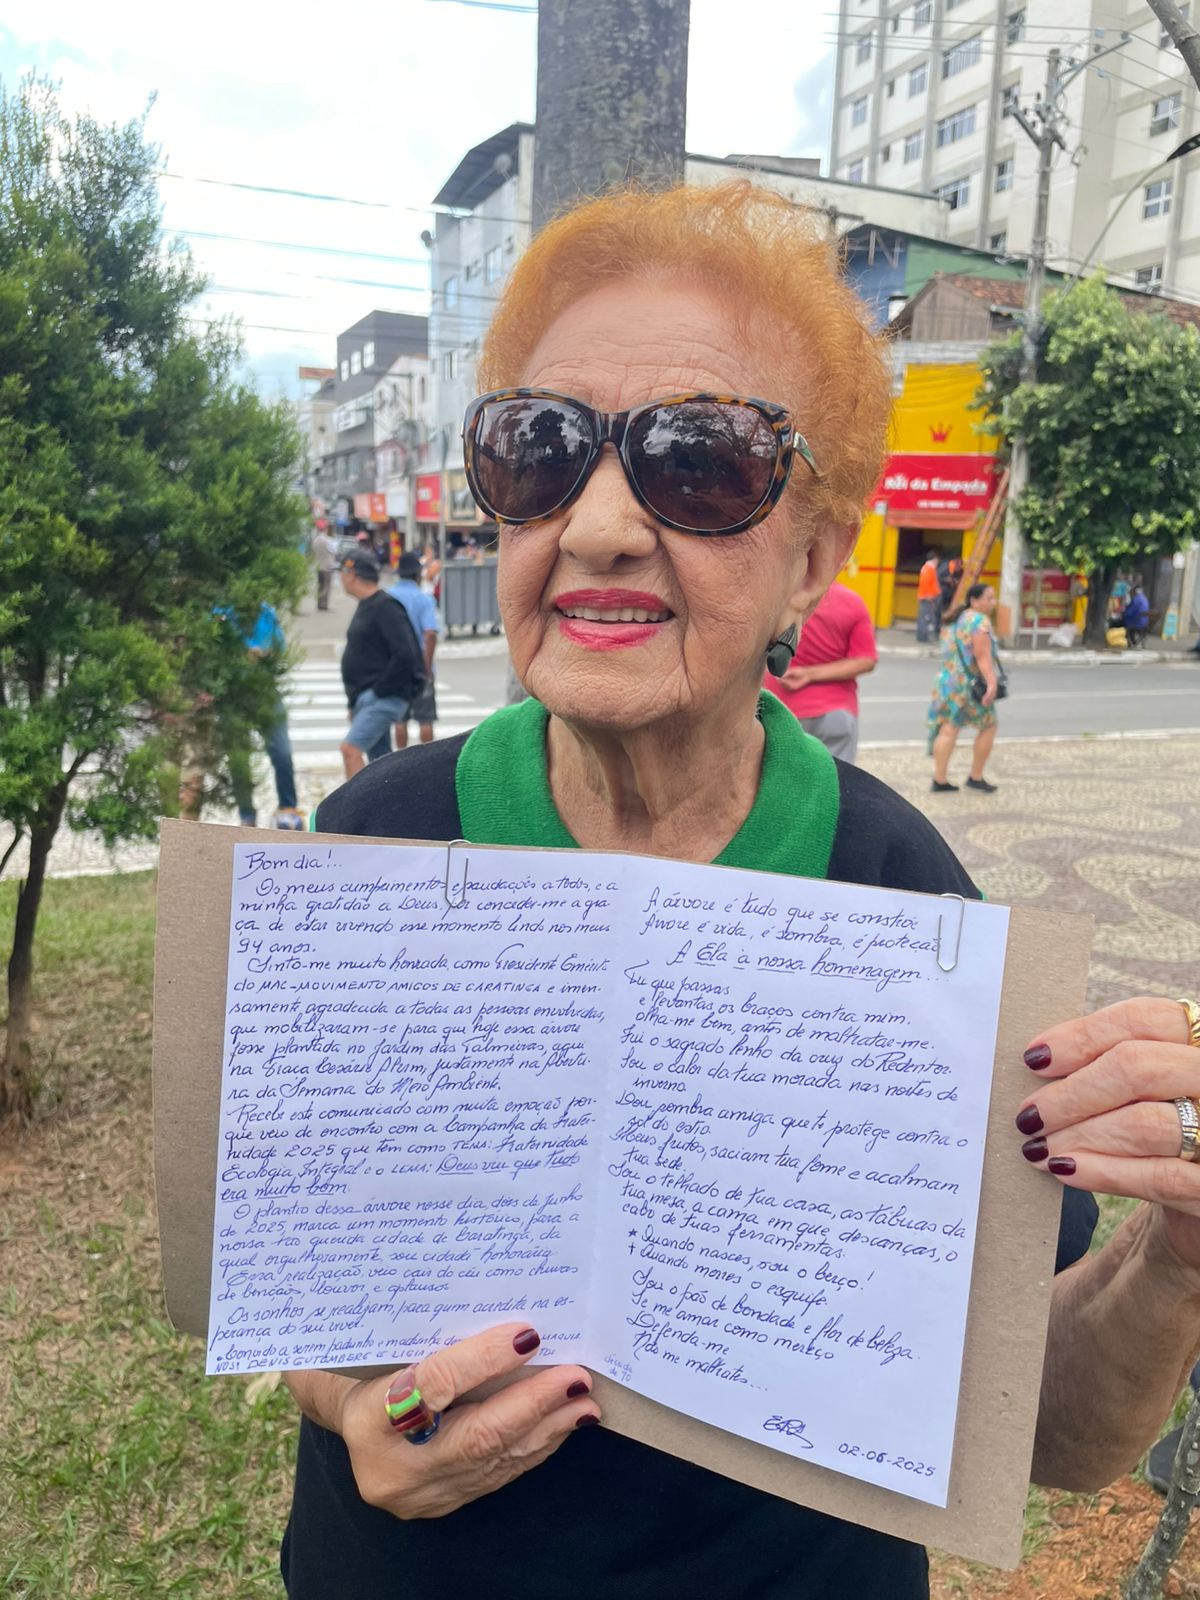 Rei da Empada
Bom dia!...
Os meus cumprimentos e saudações a todos, e a
minha gratidão a Deus, por conceder-me a gra-
ça de estar vivendo esse momento lindo nos meus
94 anos.
Sinto-me muito honrada, como Presidente Emérita
do MAC-MOVIMENTO AMIGOS DE CARATINGA e imen-
samente agradecida a todas as pessoas envolvidas,
que mobilizaram-se para que hoje essa árvore
fosse plantada no Jardim das Palmeiras, aqui
na Praça Cesário Alvim, justamente na Abertu-
ra da Semana do Meio Ambiente.
Recebi este comunicado com muita emoção por-
que veio de encontro com a Campanha da Frater-
nidade 2025 que tem como TEMA: Fraternidade
Ecologia Integral e o LEMA: Deus viu que tudo
era muito bom.
O plantio dessa árvore nesse dia, dois de junho
de 2025, marca um momento histórico, para a
nossa tão querida cidade de Caratinga, da
qual orgulhosamente, sou cidadã honorária
Essa realização, veio cair do céu como chuvas
de bençãos, louvor, e aplausos
Os sonhos se realizam, para quem acredita na es-
perança do seu viver.
Convido a serem padrinho e madrinha
NÓS! DENIS GUTEMBERG E LIGIA
A árvore é tudo que se constroe
Árvore é vida, é sombra, é proteção
A Ela a nossa homenagem...
Tu que passas
e levantas os braços contra mim,
olha-me bem, antes de maltratar-me.
Fui o sagrado lenho da cruz do Redentor.
Sou o calor da tua morada nas noites de
inverno.
Dou sombra amiga que te protege contra o
sol do estio.
Meus frutos, saciam tua fome e acalmam
tua sede.
Sou o telhado de tua casa, as tábuas da
tua mesa, a cama em que descanças, o
cabo de tuas ferramentas.
* Quando nasces, sou o berço!
† Quando morres o esquife.
Sou o pão de bondade e flor de beleza.
Se me amar como mereço
Defenda-me
Não me maltrates...
década
de 70
02-06-2025